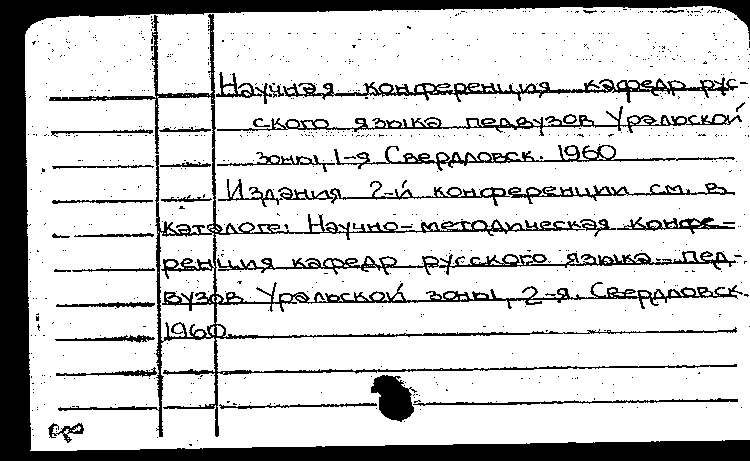 Научная конференция кафедр рус-
ского языка педвузов Уральской
зоны, 1-я Свердловск. 1960
Издания 2-й конференции см. в
каталоге: Научно-методическая конфе-
ренция кафедр русского языка пед-
вузов Уральской зоны, 2-я. Свердловск.
1960.